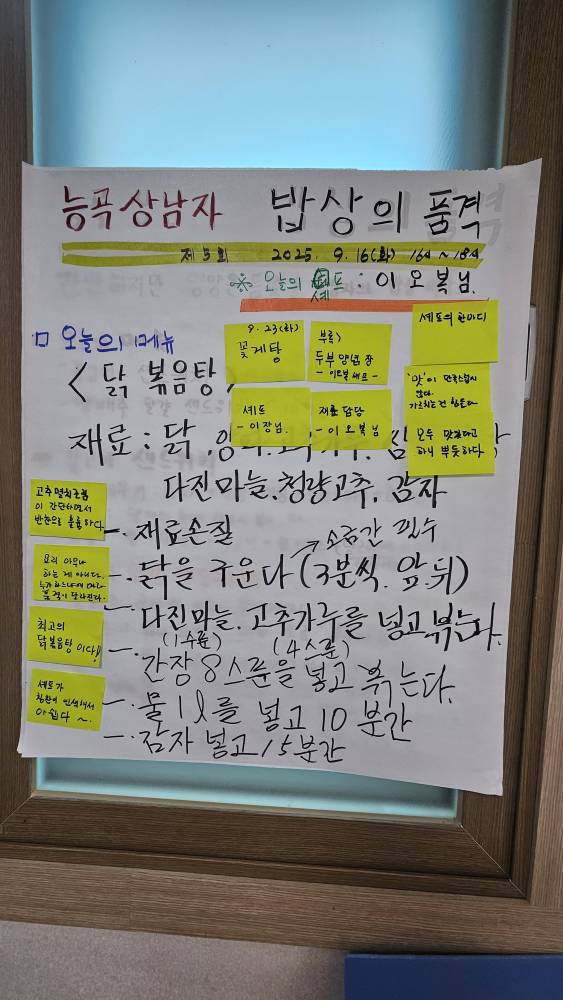 능곡 상남자 밥상의 품격
제 5회 2025. 9. 16(화) 16시~18시
※ 오늘의 셰프 : 이오복님.
□ 오늘의 메뉴
< 닭볶음탕 >
9.23(화)
꽃게탕
부록)
두부 양념장
- 이오복 셰프 -
셰프의 한마디
셰프
- 이장님.
재료 담당
- 이오복님
'맛'이 만족스럽지
않다.
가르치는건 힘든다
모두 맛있다고
하니 뿌듯하다.
재료 : 닭.
다진마늘.청량고추.감자
고추멸치조림
이 간단하면서
반찬으로 훌륭하다.
- 재료손질
소금간 필수
요리 아무나
하는 게 아니다.
누가 하느냐에 따라
품격이 달라진다.
- 닭을 구운다(3분씩.앞.뒤)
- 다진마늘.고추가루를 넣고 볶는다.
(1수푼) (4스푼)
최고의
닭볶음탕 이다!!
- 간장 8스푼을 넣고 볶는다.
셰프가
칭찬에 인색해서
아쉽다 ~.
- 물 1l를 넣고 10분간
- 감자 넣고 15분간